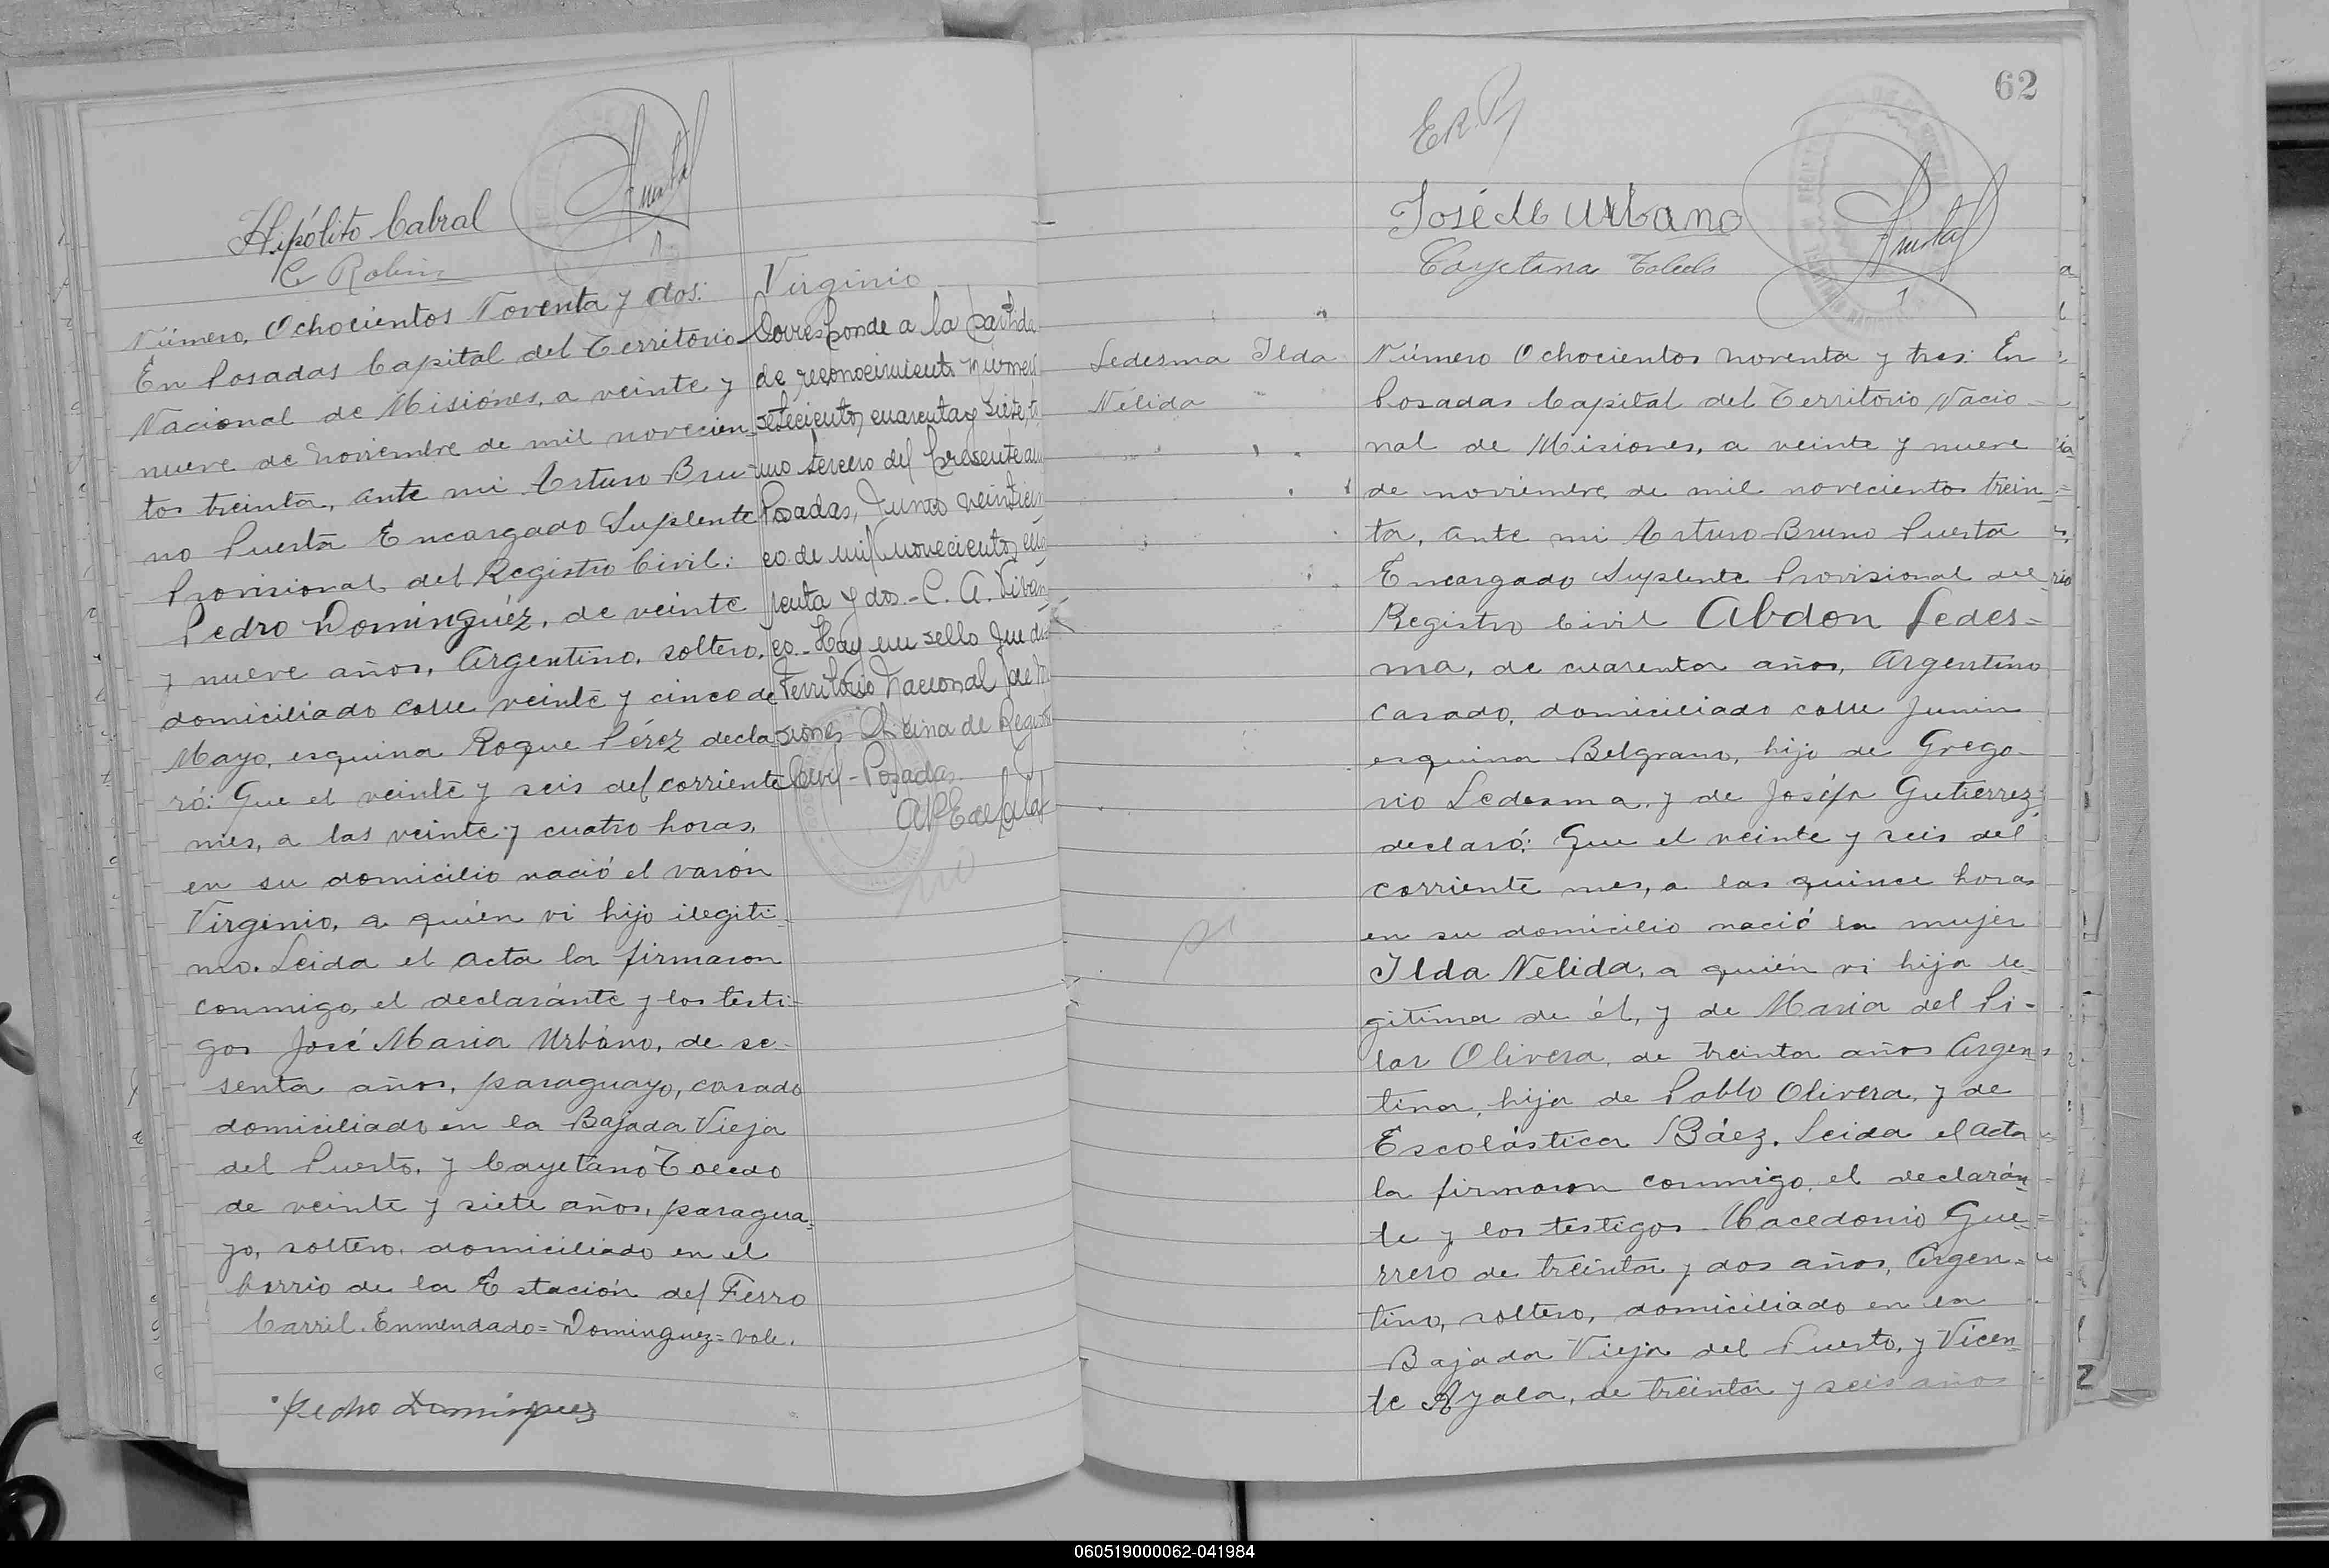 Hipólito Cabral
C Robin
Número, Ochocientos Noventa y dos:
En Posadas Capital del Territorio
Nacional de Misiónes, a veinte y
nueve de noviembre de mil novecien-
tos treinta, ante mi Arturo Bru-
no Puerta Encargado Suplente
Provisional del Registro Civil:
Pedro Dominguéz, de veinte
y nueve años, Argentino, soltero,
domiciliado calle veinte y cinco de
Mayo, esquina Roque Pérez decla-
ró: Que el veinte y seis del corriente
mes, a las veinte y cuatro horas,
en su domicilio nació el varón
Virginio, a quién vi hijo ilegiti-
mo. Leida el acta la firmaron
conmigo, el declaránte y los testi-
gos José Maria Urbáno, de se-
senta años, paraguayo, casado
domiciliado en la Bajada Vieja
del Puerto, y Cayetano Toledo
de veinte y siete años, paragua-
yo, soltero, domiciliado en el
barrio de la Estación del Ferro
Carril. Enmendado=Dominguez=vale.
Pedro Dominguez
Virginio
Corresponde a la partida
de reconocimiento número
setecientos cuarenta y siete, to
mo tercero del presente año
Posadas, Junio veinticin
co de mil novecientos cin
cuenta y dos.- C. A. Viban
co.- Hay un sello que di
Territorio Nacional de Mi
siones Oficina de Registro
Civil - Posadas.
62
E.R.P
José M Urbano
Cayetana Toledo
Ledesma Ilda
Nélida
Número Ochocientos noventa y tres: En
Posadas Capital del Territorio Nacio-
nal de Misiones, a veinte y nueve
de noviembre de mil novecientos trein-
ta, ante mi Arturo Bruno Puerta
Encargado Suplente Provisional del
Registro Civil Abdon Ledes=
ma, de cuarenta años, Argentino
casado, domiciliado calle Junin
esquina Belgrano, hijo de Grego-
rio Ledesma, y de Josefa Gutierrez,
declaró: Que el veinte y seis del
corriente mes, a las quince horas
en su domicilio nació la mujer
Ilda Nelida, a quién vi hija le-
gitima de él, y de Maria del Pi-
lar Olivera, de treinta años Argen-
tina, hija de Pablo Olivera, y de
Escolástica Báez. Leida el acta
la firmaron conmigo, el declarán-
te y los testigos Macedonio Gue-
rrero de treinta y dos años, Argen-
tino, soltero, domiciliado en la
Bajada Vieja del Puerto, y Vicen-
te Ayala, de treinta y seis años
Z
060519000062-041984